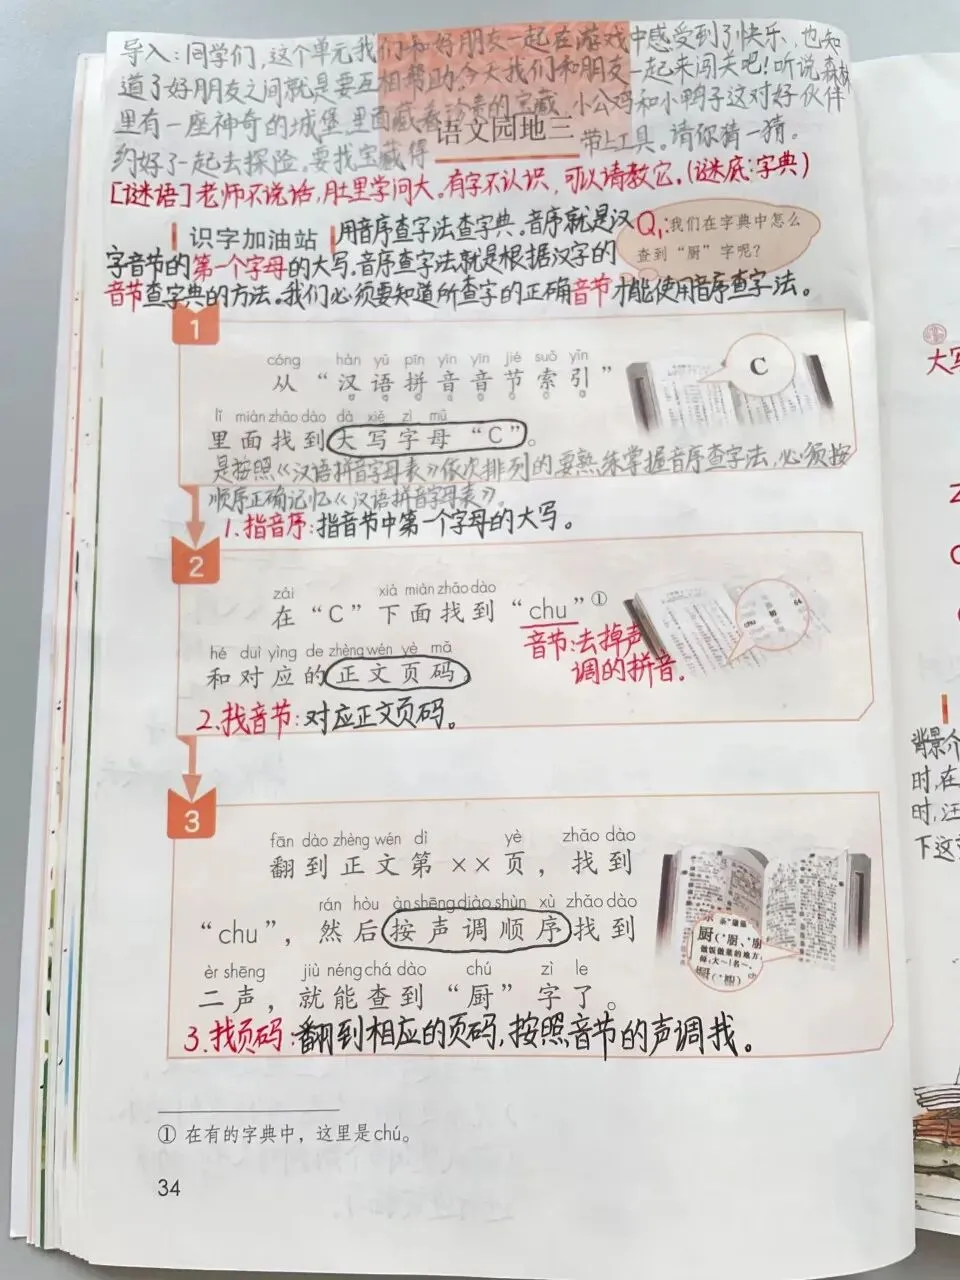 导入：同学们，这个单元我们和好朋友一起在游戏中感受到了快乐，也知
道了好朋友之间就是要互相帮助。今天我们和朋友一起来闯关吧！听说森林
里有一座神奇的城堡，里面藏着珍贵的宝藏，小公鸡和小鸭子这对好伙伴
约好了一起去探险。要找宝藏得带上工具。请你猜一猜。
语文园地三
[谜语]老师不说话，肚里学问大。有字不认识，可以请教它。(谜底：字典)
识字加油站
用音序查字法查字典。音序就是汉
字音节的第一个字母的大写。音序查字法就是根据汉字的
音节查字典的方法。我们必须要知道所查字的正确音节才能使用音序查字法。
Q1：我们在字典中怎么
查到“厨”字呢？
1
cóng hàn yǔ pīn yīn yīn jié suǒ yǐn
从“汉语拼音音节索引”
C
lǐ miàn zhǎo dào dà xiě zì mǔ
里面找到大写字母“C”。
是按照《汉语拼音字母表》依次排列的，要熟练掌握音序查字法，必须按
顺序正确记忆《汉语拼音字母表》。
1.指音序：指音节中第一个字母的大写。
2
zài xià miàn zhǎo dào
在“C”下面找到“chu”①
音节：去掉声
调的拼音。
hé duì yìng de zhèng wén yè mǎ
和对应的正文页码
2.找音节：对应正文页码。
3
fān dào zhèng wén dì yè zhǎo dào
翻到正文第××页，找到
rán hòu àn shēng diào shùn xù zhǎo dào
“chu”，然后按声调顺序找到
èr shēng jiù néng chá dào chú zì le
二声，就能查到“厨”字了。
3.找页码：翻到相应的页码，按照音节的声调找。
① 在有的字典中，这里是chú。
34
大写
背景介
时，在
下这